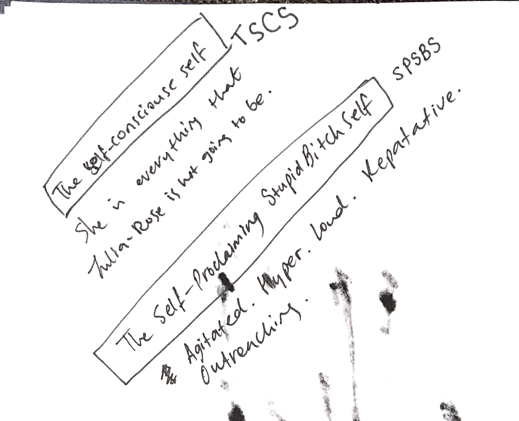 The self-consciouse self
TSCS
She is everything that
Julia-Rose is not going to be.
The Self-Proclaiming Stupid Bitch Self
SPSBS
Agitated. Hyper. Loud. Repatative.
Outreaching.